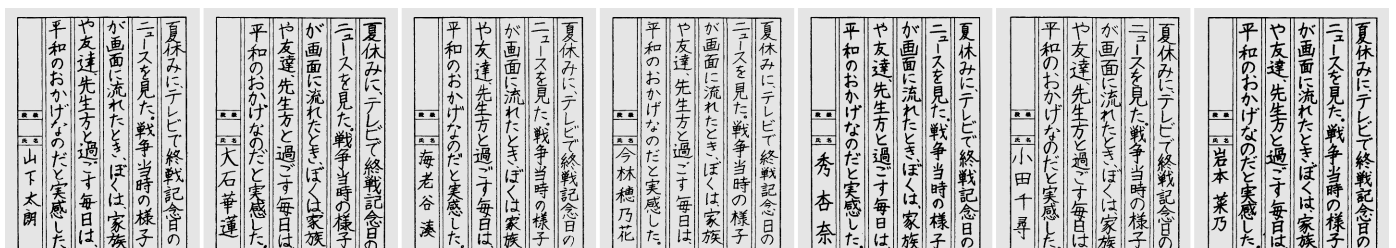 夏休みに、テレビで終戦記念日の
ニュースを見た。戦争当時の様子
が画面に流れたとき、ぼくは、家族
や友達、先生方と過ごす毎日は、
平和のおかげなのだと実感した。
段級
氏名
山下太朗
夏休みに、テレビで終戦記念日の
ニュースを見た。戦争当時の様子
が画面に流れたとき、ぼくは、家族
や友達、先生方と過ごす毎日は、
平和のおかげなのだと実感した。
段級
氏名
大石華蓮
夏休みに、テレビで終戦記念日の
ニュースを見た。戦争当時の様子
が画面に流れたとき、ぼくは、家族
や友達、先生方と過ごす毎日は、
平和のおかげなのだと実感した。
段級
氏名
海老谷湊
夏休みに、テレビで終戦記念日の
ニュースを見た。戦争当時の様子
が画面に流れたとき、ぼくは、家族
や友達、先生方と過ごす毎日は、
平和のおかげなのだと実感した。
段級
氏名
今林穂乃花
夏休みに、テレビで終戦記念日の
ニュースを見た。戦争当時の様子
が画面に流れたとき、ぼくは、家族
や友達、先生方と過ごす毎日は、
平和のおかげなのだと実感した。
段級
氏名
秀杏奈
夏休みに、テレビで終戦記念日の
ニュースを見た。戦争当時の様子
が画面に流れたとき、ぼくは、家族
や友達、先生方と過ごす毎日は、
平和のおかげなのだと実感した。
段級
氏名
小田千尋
夏休みに、テレビで終戦記念日の
ニュースを見た。戦争当時の様子
が画面に流れたとき、ぼくは、家族
や友達、先生方と過ごす毎日は、
平和のおかげなのだと実感した。
段級
氏名
岩本菜乃